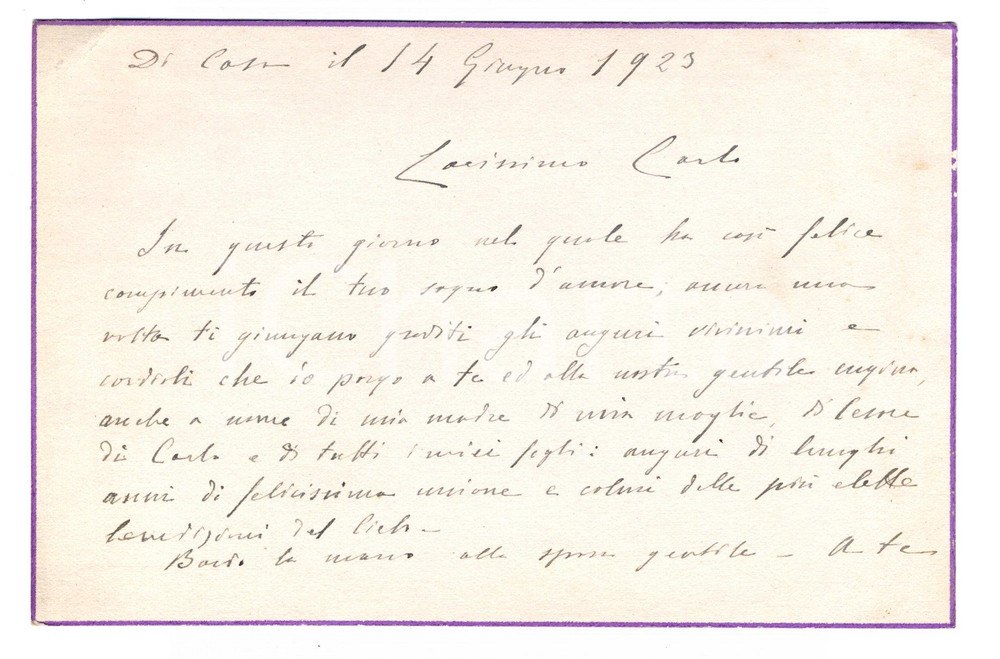 Di Casa il 14 Giugno 1923
Carissimo Carlo
In questo giorno nel quale ha così felice
compimento il tuo sogno d'amore, ancora una
volta ti giungano graditi gli auguri vivissimi e
cordiali che io porgo a te ed alla nostra gentile cugina,
anche a nome di mia madre di mia moglie, di Cesare
di Carlo e di tutti i miei figli: auguri di lunghi
anni di felicissima unione e colmi delle più elette
benedizioni del Cielo -
Bacio la mano alla sposa gentile - A te